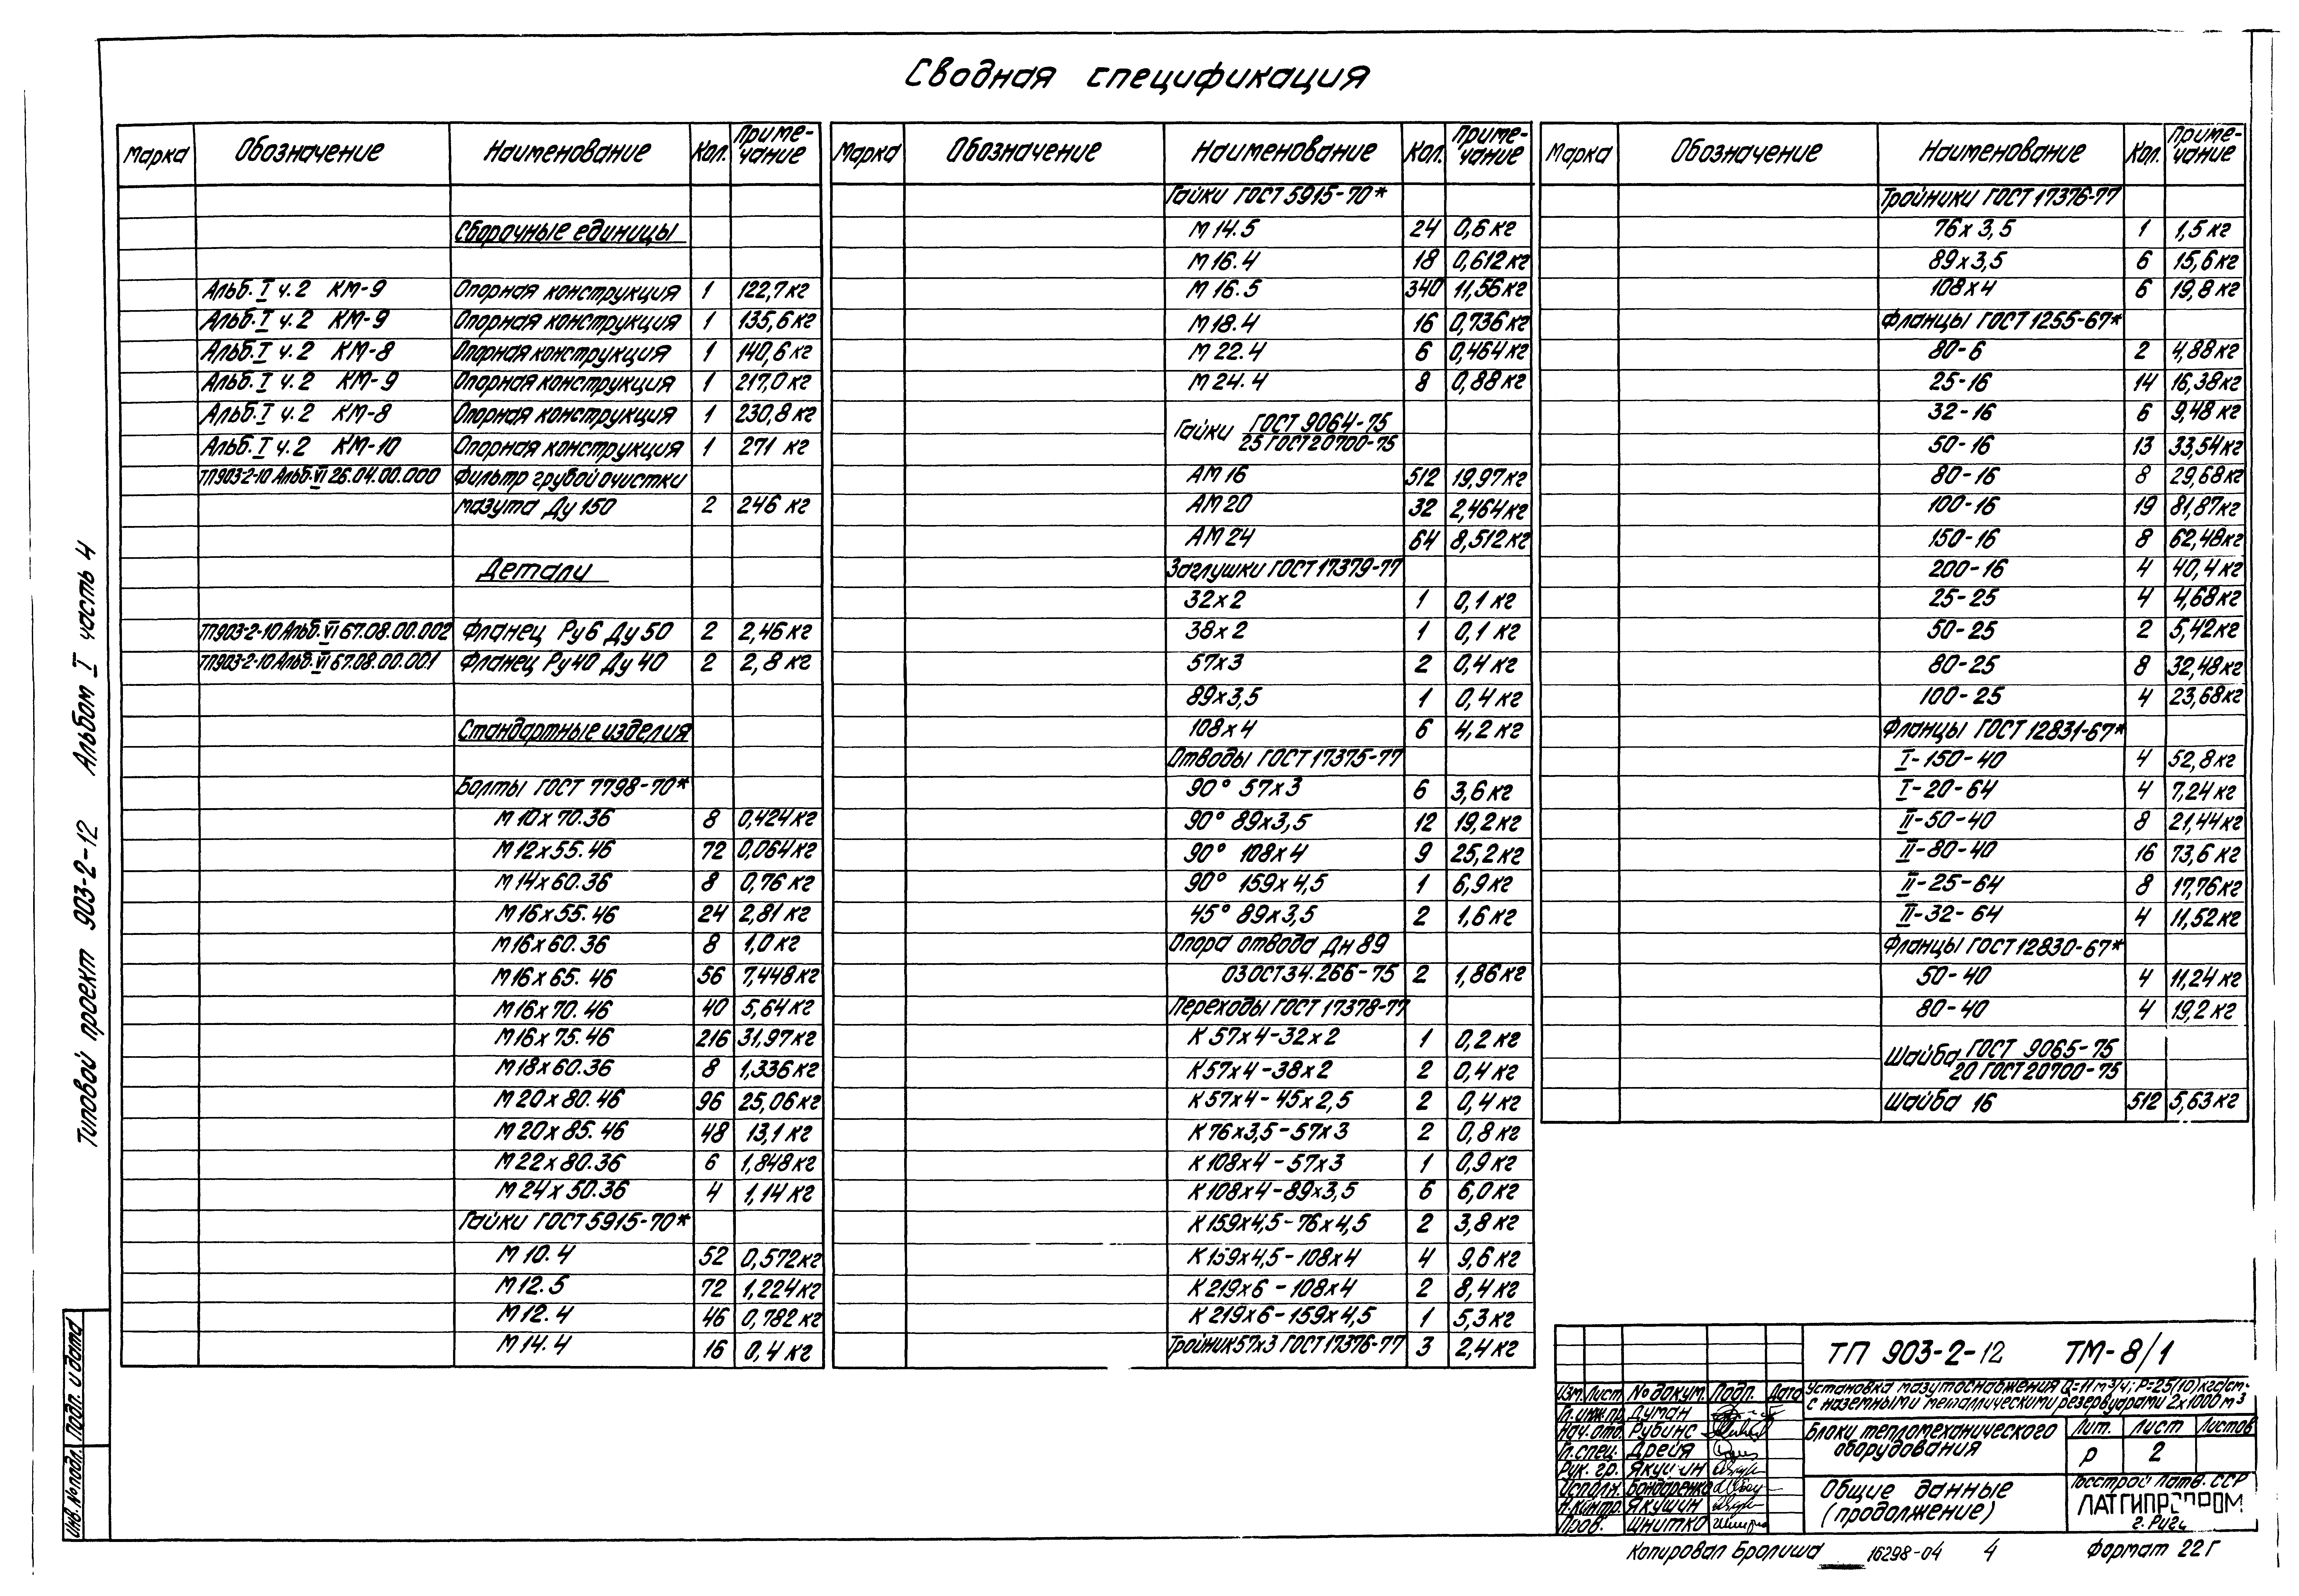 Сводная спецификация
Марка Обозначение Наименование Кол. Приме-чание
Сборочные единицы
Альб. I ч. 2 КМ-9 Опорная конструкция 1 122,7 кг
Альб. I ч. 2 КМ-9 Опорная конструкция 1 135,6 кг
Альб. I ч. 2 КМ-8 Опорная конструкция 1 140,6 кг
Альб. I ч. 2 КМ-9 Опорная конструкция 1 217,0 кг
Альб. I ч. 2 КМ-8 Опорная конструкция 1 230,8 кг
Альб. I ч. 2 КМ-10 Опорная конструкция 1 271 кг
ТП903-2-10 Альб. VI 26.04.00.000 Фильтр грубой очистки
мазута Ду 150 2 246 кг
Детали
ТП903-2-10 Альб. VI 67.08.00.002 Фланец Ру6 Ду 50 2 2,46 кг
ТП903-2-10 Альб. VI 67.08.00.001 Фланец Ру40 Ду 40 2 2,8 кг
Стандартные изделия
Болты ГОСТ 7798-70*
М 10х70.36 8 0,424 кг
М12х55.46 72 0,064 кг
М14х60.36 8 0,76 кг
М16х55.46 24 2,81 кг
М16х60.36 8 1,0 кг
М16х65.46 56 7,448 кг
М16х70.46 40 5,64 кг
М16х75.46 216 31,97 кг
М18х60.36 8 1,336 кг
М20х80.46 96 25,06 кг
М20х85.46 48 13,1 кг
М22х80.36 6 1,848 кг
М24х50.36 4 1,14 кг
Гайки ГОСТ 5915-70*
М 10.4 52 0,572 кг
М12.5 72 1,224 кг
М12.4 46 0,782 кг
М14.4 16 0,4 кг
Марка Обозначение Наименование Кол. Приме-чание
Гайки ГОСТ 5915-70*
М 14.5 24 0,6 кг
М 16.4 18 0,612 кг
М 16.5 340 11,56 кг
М 18.4 16 0,736 кг
М 22.4 6 0,464 кг
М 24.4 8 0,88 кг
Гайки ГОСТ 9064-75
25 ГОСТ 20700-75
АМ 16 512 19,97 кг
АМ 20 32 2,464 кг
АМ 24 64 8,512 кг
Заглушки ГОСТ 17379-77
32х2 1 0,1 кг
38х2 1 0,1 кг
57х3 2 0,4 кг
89х3,5 1 0,4 кг
108х4 6 4,2 кг
Отводы ГОСТ 17375-77
90° 57х3 6 3,6 кг
90° 89х3,5 12 19,2 кг
90° 108х4 9 25,2 кг
90° 159х4,5 1 6,9 кг
45° 89х3,5 2 1,6 кг
Опора отвода Дн 89
03 ОСТ 34.266-75 2 1,86 кг
Переходы ГОСТ 17378-77
К 57х4-32х2 1 0,2 кг
К 57х4-38х2 2 0,4 кг
К 57х4-45х2,5 2 0,4 кг
К 76х3,5-57х3 2 0,8 кг
К 108х4-57х3 1 0,9 кг
К 108х4-89х3,5 6 6,0 кг
К 159х4,5-76х4,5 2 3,8 кг
К 159х4,5-108х4 4 9,6 кг
К 219х6-108х4 2 8,4 кг
К 219х6-159х4,5 1 5,3 кг
Тройник 57х3 ГОСТ 17376-77 3 2,4 кг
Марка Обозначение Наименование Кол. Приме-чание
Тройники ГОСТ 17376-77
76х3,5 1 1,5 кг
89х3,5 6 15,6 кг
108х4 6 19,8 кг
Фланцы ГОСТ 1255-67*
80-6 2 4,88 кг
25-16 14 16,38 кг
32-16 6 9,48 кг
50-16 13 33,54 кг
80-16 8 29,68 кг
100-16 19 81,87 кг
150-16 8 62,48 кг
200-16 4 40,4 кг
25-25 4 4,68 кг
50-25 2 5,42 кг
80-25 8 32,48 кг
100-25 4 23,68 кг
Фланцы ГОСТ 12831-67*
I-150-40 4 52,8 кг
I-20-64 4 7,24 кг
II-50-40 8 21,44 кг
II-80-40 16 73,6 кг
II-25-64 8 17,76 кг
II-32-64 4 11,52 кг
Фланцы ГОСТ 12830-67*
50-40 4 11,24 кг
80-40 4 19,2 кг
Шайба ГОСТ 9065-75
20 ГОСТ 20700-75
Шайба 16 512 5,63 кг
Типовой проект 903-2-12 Альбом I часть 4
Инв. № подл. Подп. и дата
ТП 903-2-12 ТМ-8/1
Изм. Лист № докум. Подп. Дата
Установка мазутоснабжения Q=11 м³/ч; Р=25(10) кгс/см²
с наземными металлическими резервуарами 2х1000 м³
Гл. инж. пр. Думан
Нач. отд. Рубинс
Гл. спец. Дрейя
Рук. гр. Якушин
Исполн. Бондаренко
Н. контр. Якушин
Пров. Шнитко
Блоки тепломеханического
оборудования
Лит. Лист Листов
Р 2
Общие данные
(продолжение)
Госстрой Латв. ССР
ЛАТГИПРОПРОМ
г. Рига
Копировал Бролиша 16298-04 4 Формат 22Г